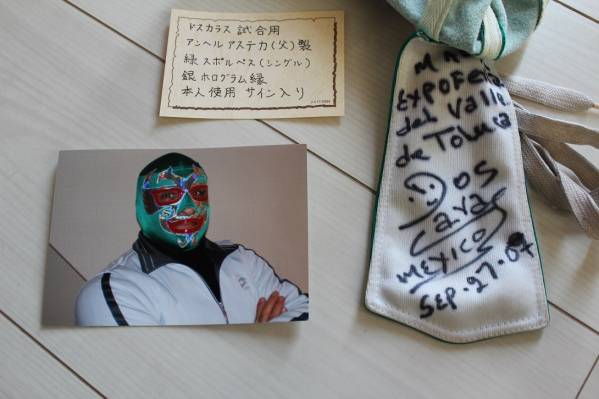 ドスカラス 試合用
アンヘル アステカ(父)製
緑 スポルベス(シングル)
銀 ホログラム縁
本人使用 サイン入り
ExpoFeria
del Valle
de Toluca
Dos
Caras
MEXICO
SEP.27.07